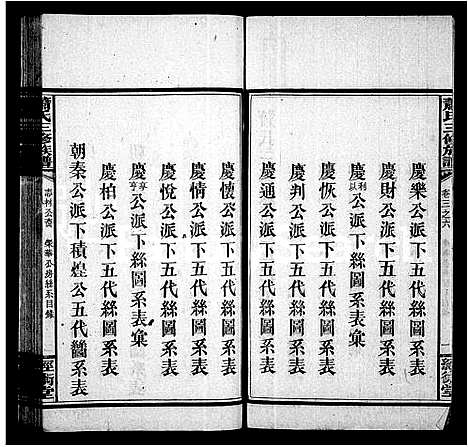 蕭氏三修族譜
卷三之六
慶樂公派下五代絲圖系表
慶財公派下五代絲圖系表
慶以利公派下絲圖系表彙
慶恢公派下五代絲圖系表
慶判公派下五代絲圖系表
慶通公派下五代絲圖系表
慶懷公派下五代絲圖系表
慶情公派下五代絲圖系表
慶悅公派下五代絲圖系表
慶亨享公派下絲圖系表彙
慶柏公派下五代絲圖系表
朝秦公派下積煌公五代齠系表
蕭氏三修族譜